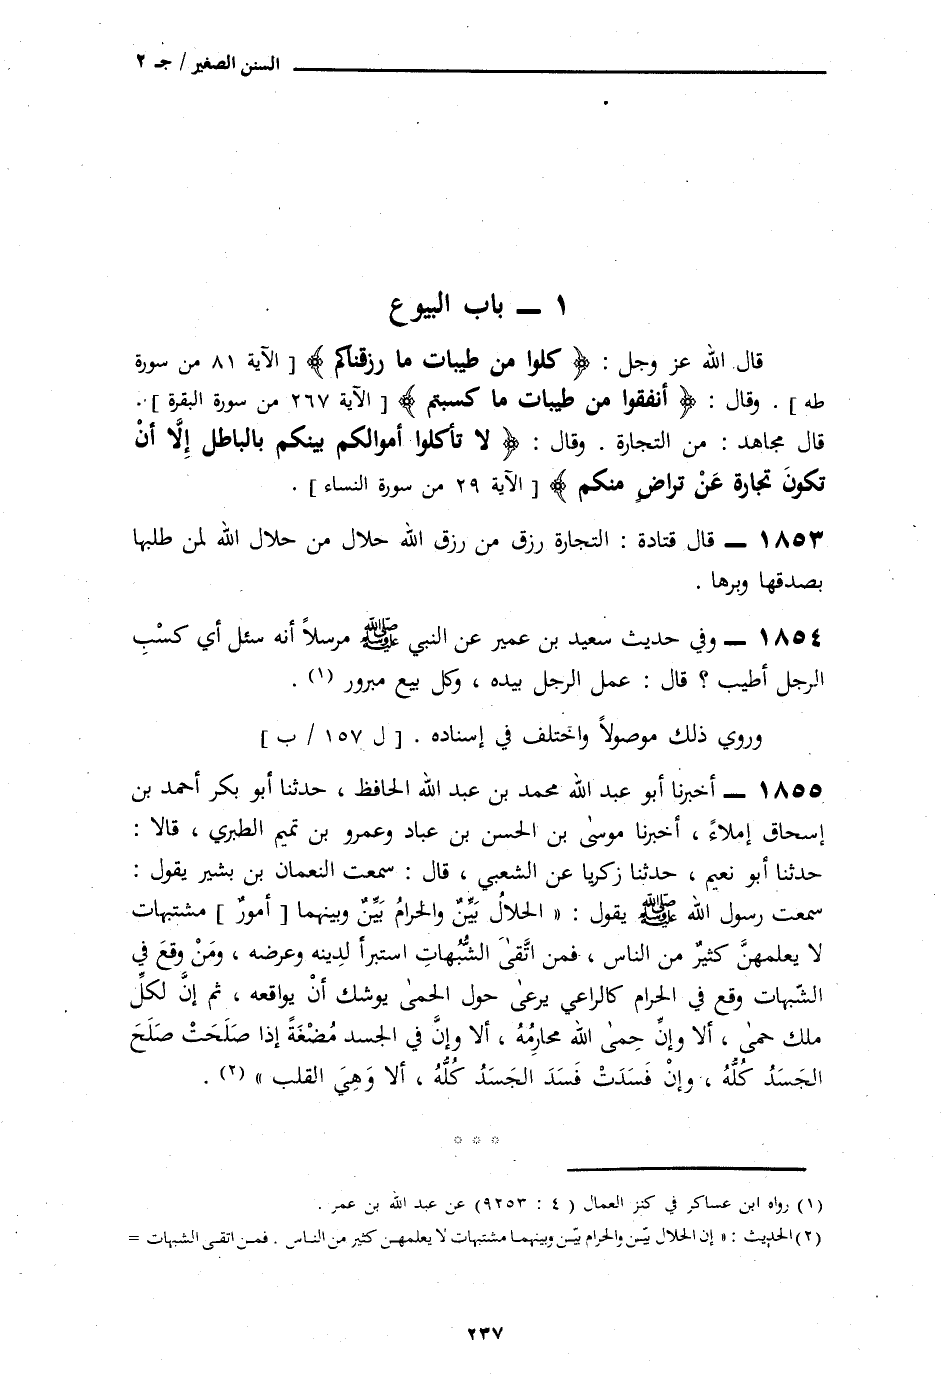 السنن الصغير / جـ ٢
١ ــ باب البيوع
قال الله عز وجل : ﴿ كلوا من طيبات ما رزقناكم ﴾ [ الآية ٨١ من سورة
طه ] . وقال : ﴿ أنفقوا من طيبات ما كسبتم ﴾ [ الآية ٢٦٧ من سورة البقرة ] .
قال مجاهد : من التجارة . وقال : ﴿ لا تأكلوا أموالكم بينكم بالباطل إِلَّا أنْ
تكونَ تجارة عَنْ تراضٍ منكم ﴾ [ الآية ٢٩ من سورة النساء ] .
١٨٥٣ ــ قال قتادة : التجارة رزق من رزق الله حلال من حلال الله لمن طلبها
بصدقها وبرها .
١٨٥٤ ــ وفي حديث سعيد بن عمير عن النبي ﷺ مرسلاً أنه سئل أي كسْبِ
الرجل أطيب ؟ قال : عمل الرجل بيده ، وكل بيع مبرور (١) .
وروي ذلك موصولاً واختلف في إسناده . [ ل ١٥٧ / ب ]
١٨٥٥ ــ أخبرنا أبو عبد الله محمد بن عبد الله الحافظ ، حدثنا أبو بكر أحمد بن
إسحاق إملاءً ، أخبرنا موسىٰ بن الحسن بن عباد وعمرو بن تميم الطبري ، قالا :
حدثنا أبو نعيم ، حدثنا زكريا عن الشعبي ، قال : سمعت النعمان بن بشير يقول :
سمعت رسول الله ﷺ يقول : « الحلالُ بَيِّنٌ والحرامُ بَيِّنٌ وبينهما [ أمورٌ ] مشتبهات
لا يعلمهنَّ كثيرٌ من الناس ، فمن اتَّقىٰ الشُّبُهاتِ استبرأ لدينه وعرضه ، ومَنْ وقعَ في
الشّبهات وقع في الحرام كالراعي يرعىٰ حول الحمىٰ يوشك أنْ يواقعه ، ثم إنَّ لكلِّ
ملك حمىٰ ، ألا وإنِّ حِمىٰ الله محارِمُهُ ، ألا وإنَّ في الجسد مُضْغَةً إذا صَلَحَتْ صَلَحَ
الجَسَدُ كُلُّهُ ، وإنْ فَسَدَتْ فَسَدَ الجَسَدُ كُلُّهُ ، ألا وَهِيَ القلب » (٢) .
* * *
(١) رواه ابن عساكر في كنز العمال ( ٤ : ٩٢٥٣) عن عبد الله بن عمر .
(٢) الحديث : « إن الحلال بيّن والحرام بيّن وبينهما مشتبهات لا يعلمهن كثير من الناس . فمن اتقى الشبهات =
٢٣٧